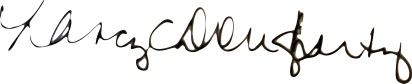 Nancy C Dougherty